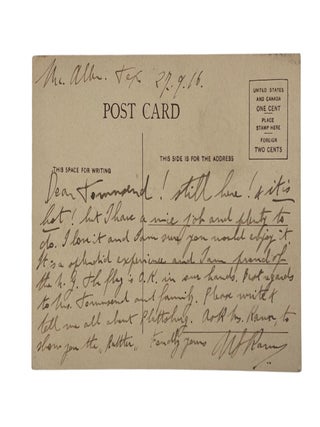 Mc. Allen Tex 27.9.16.
POST CARD
UNITED STATES
AND CANADA
ONE CENT
PLACE
STAMP HERE
FOREIGN
TWO CENTS
THIS SPACE FOR WRITING
THIS SIDE IS FOR THE ADDRESS
Dear Townsend! Still here! & it is
hot! but I have a nice job and plenty to
do. I love it and I am sure you would enjoy it
It is a splendid experience and I am proud of
the N.G. The flag is O.K. in our hands. Best regards
to Mrs. Townsend and family. Please write &
tell me all about Plattsburg. Ask Mrs. to
show you the „Rattler„ Yours